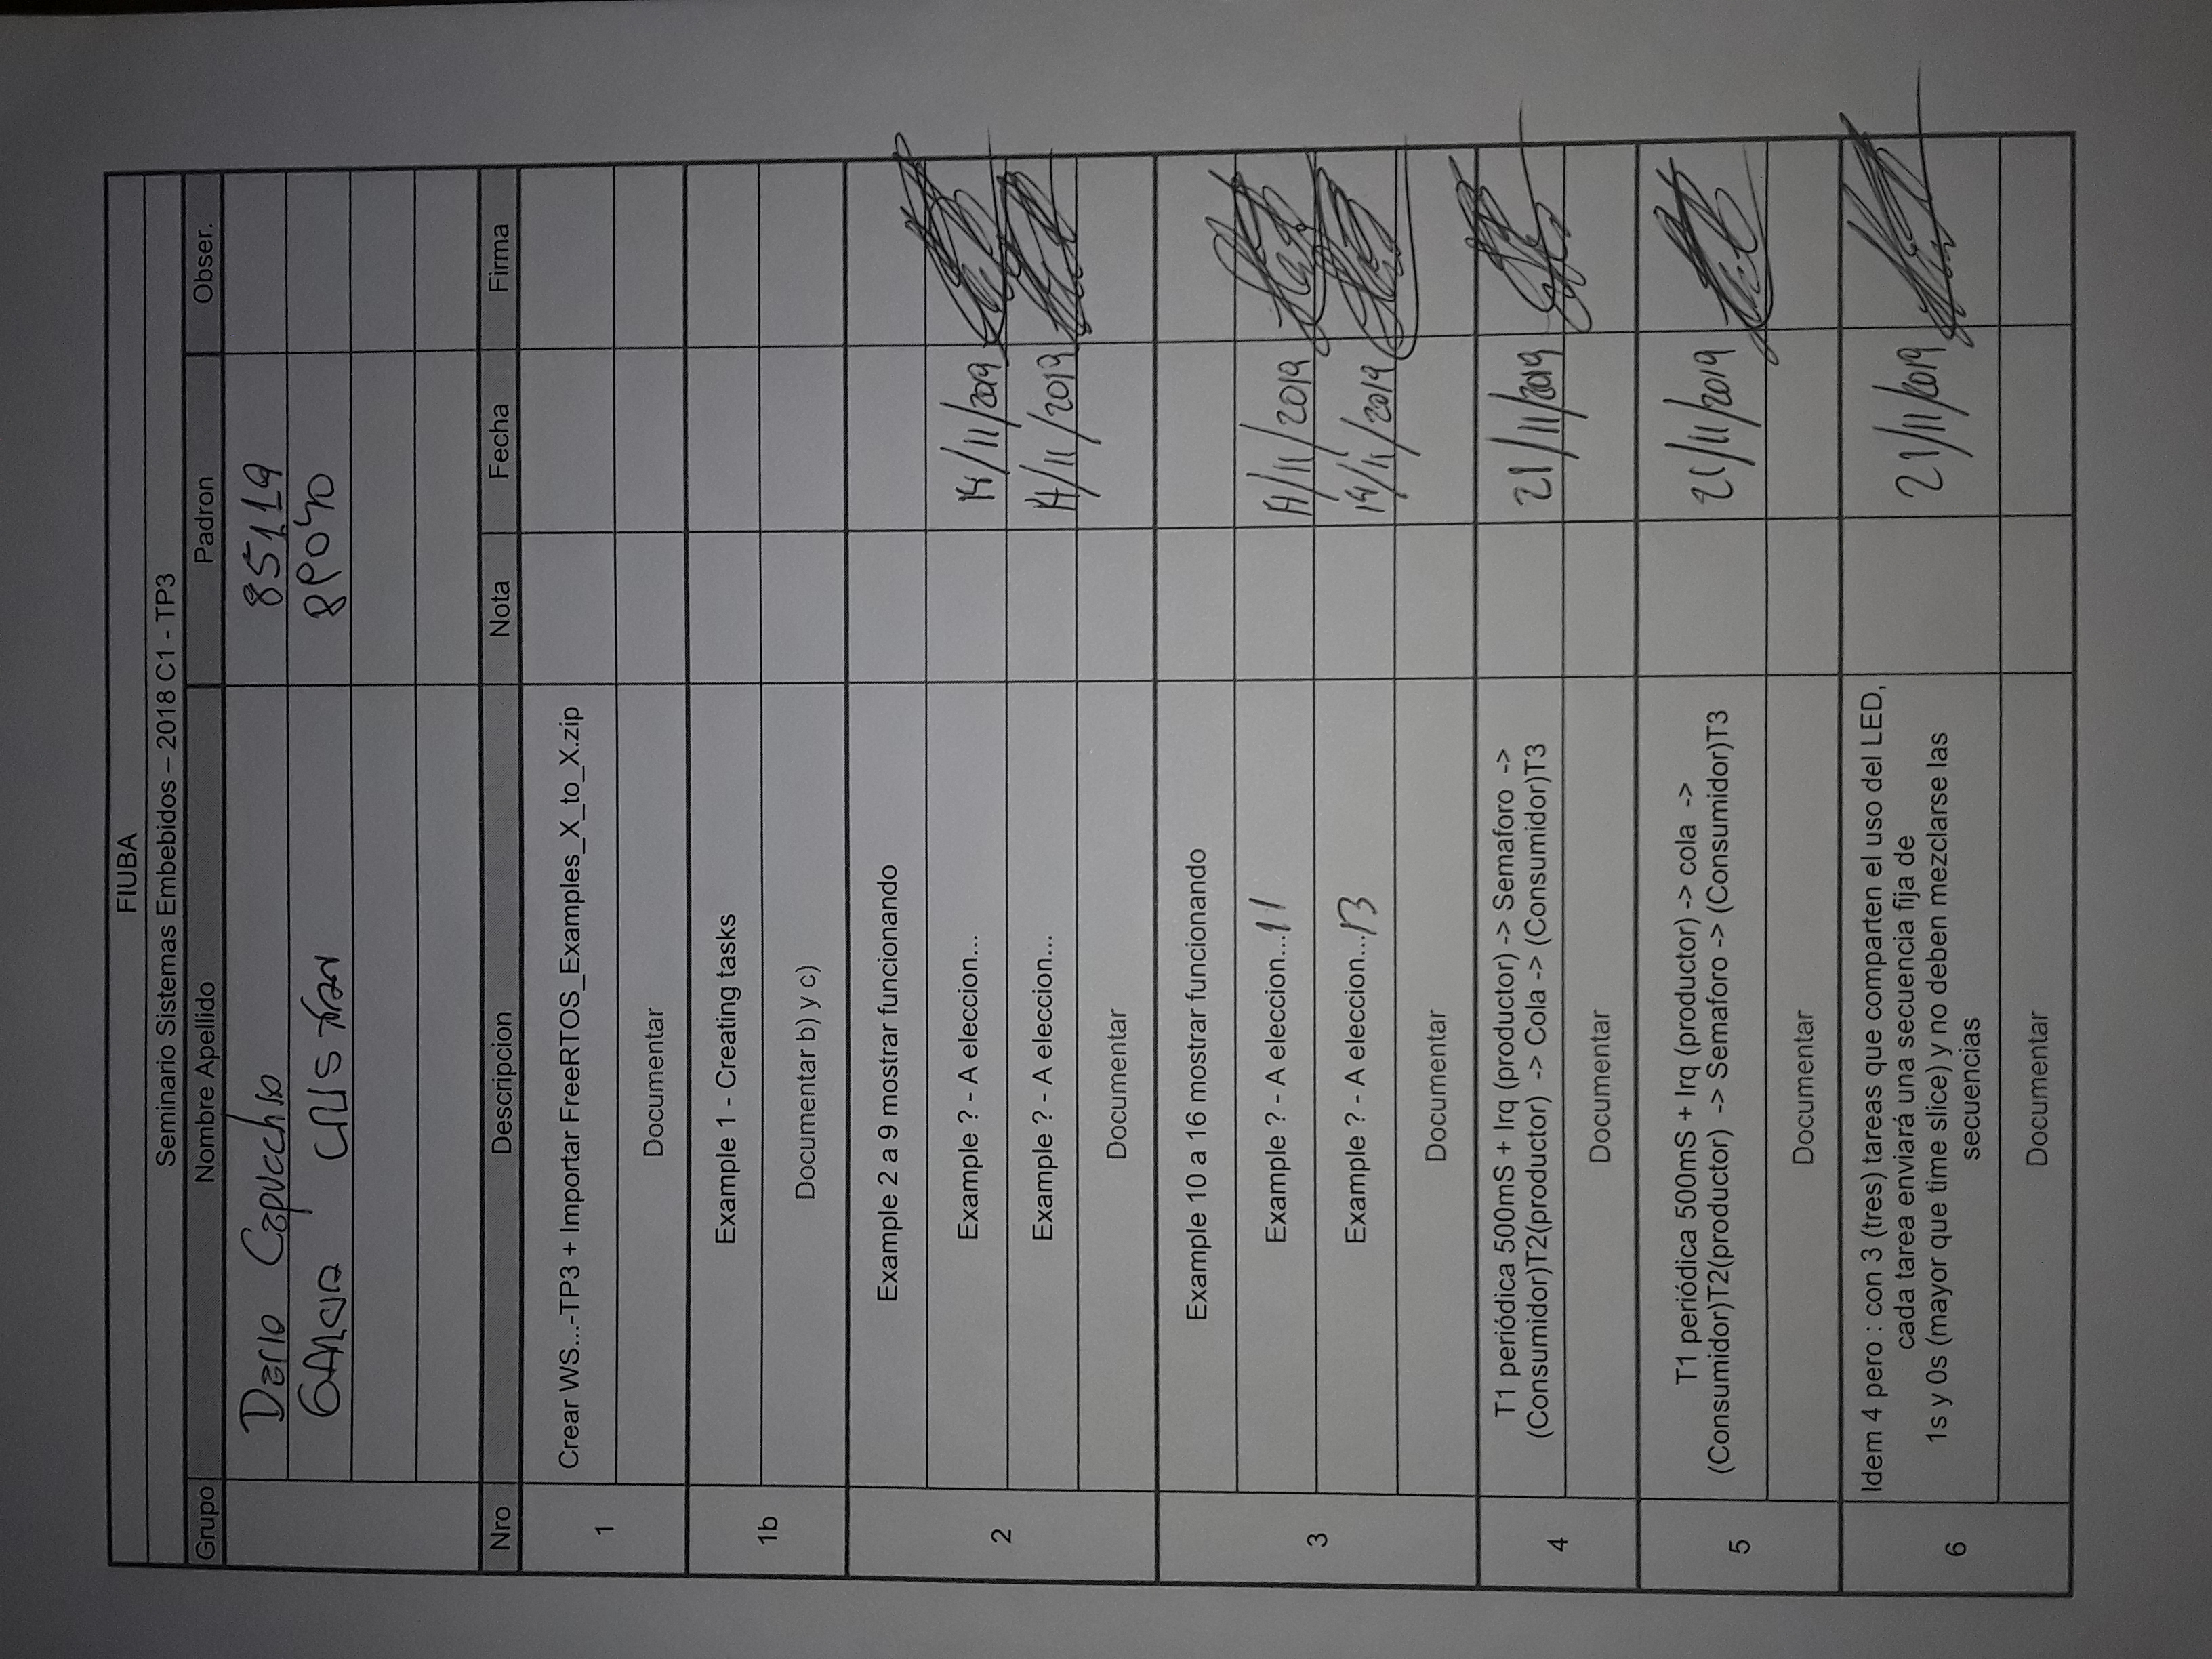 FIUBA
Seminario Sistemas Embebidos – 2018 C1 - TP3
Grupo Nombre Apellido Padron Obser.
Dario Capucchio 85119
GARCIA CRISTIAN 89040
Nro Descripcion Nota Fecha Firma
1
Crear WS...-TP3 + Importar FreeRTOS_Examples_X_to_X.zip
Documentar
1b
Example 1 - Creating tasks
Documentar b) y c)
2
Example 2 a 9 mostrar funcionando
Example ? - A eleccion... 14/11/2019
Example ? - A eleccion... 14/11/2019
Documentar
3
Example 10 a 16 mostrar funcionando
Example ? - A eleccion...11 14/11/2019
Example ? - A eleccion...13 14/11/2019
Documentar
4
T1 periódica 500mS + Irq (productor) -> Semaforo ->
(Consumidor)T2(productor) -> Cola -> (Consumidor)T3 21/11/2019
Documentar
5
T1 periódica 500mS + Irq (productor) -> cola ->
(Consumidor)T2(productor) -> Semaforo -> (Consumidor)T3 21/11/2019
Documentar
6
Idem 4 pero : con 3 (tres) tareas que comparten el uso del LED,
cada tarea enviará una secuencia fija de
1s y 0s (mayor que time slice) y no deben mezclarse las 21/11/2019
secuencias
Documentar